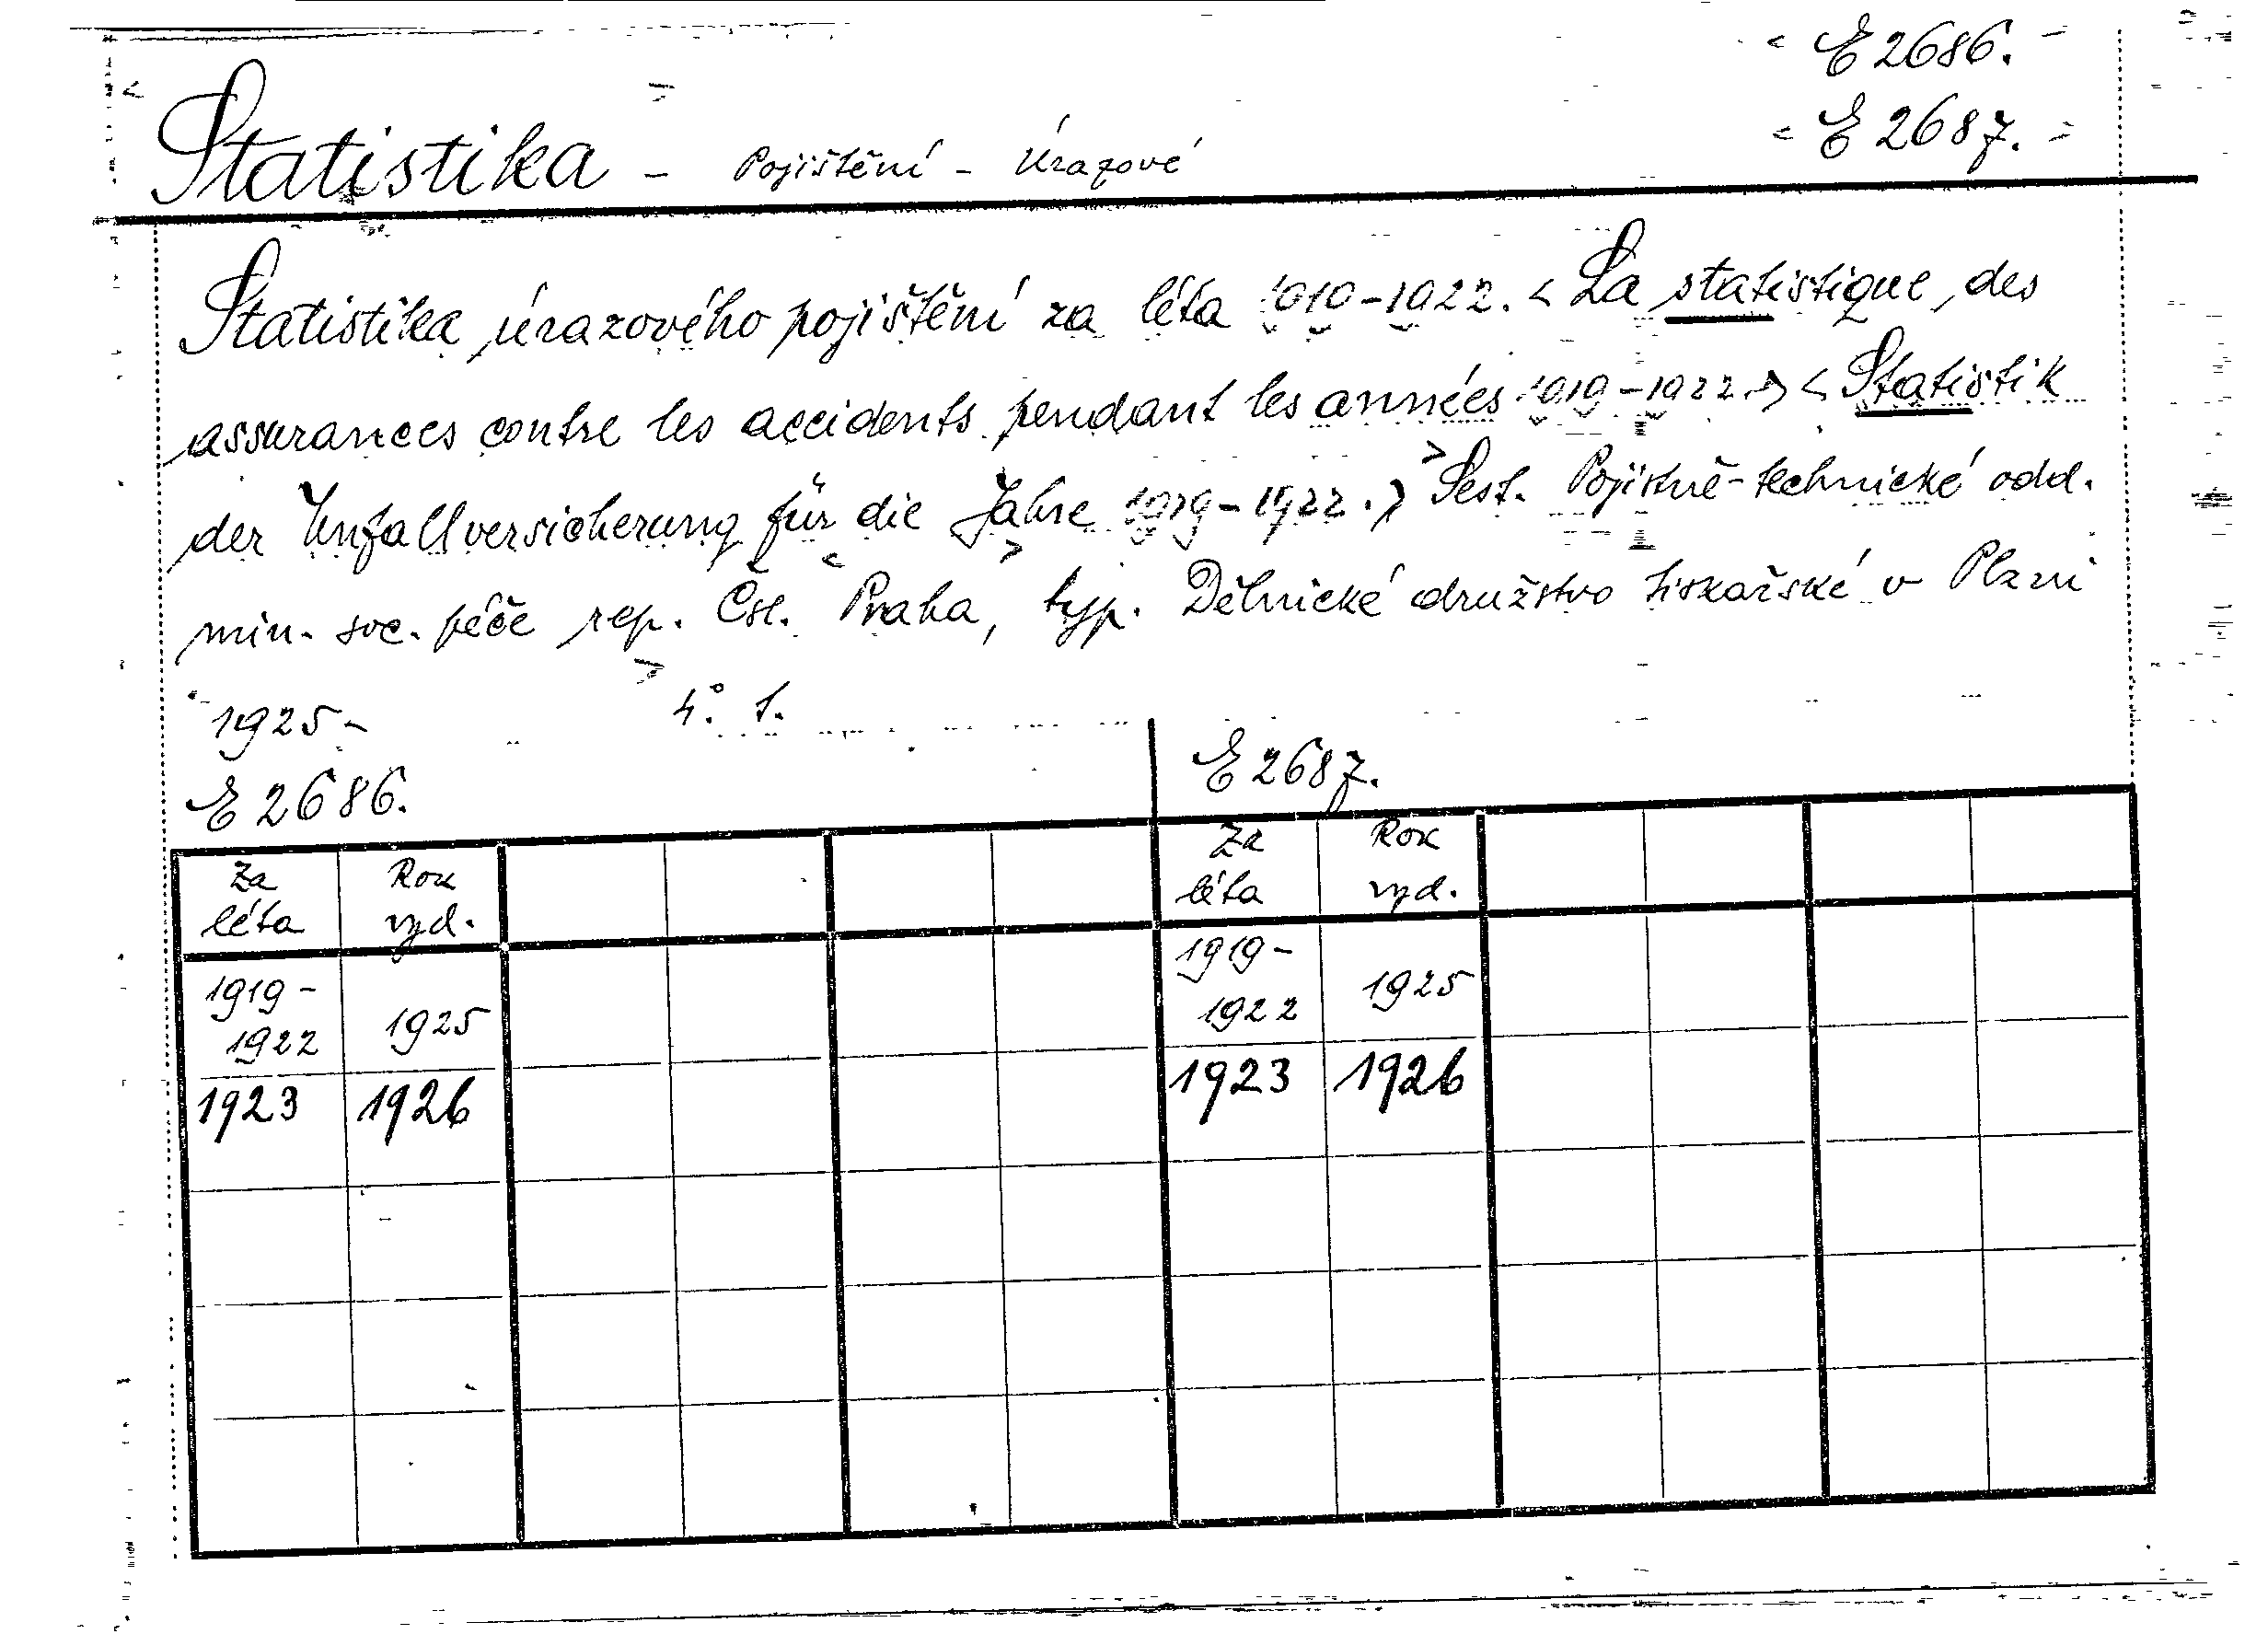 E 2686.
E 2687.
Statistika - Pojištění - Úrazové
Statistika úrazového pojištění za léta 1919-1922. < La statistique des
assurances contre les accidents pendant les années 1919-1922.> < Statistik
der Unfallversicherung für die Jahre 1919-1922.> Sest. Pojistně-technické odd.
min. soc. péče rep. Čsl. Praha, typ. Dělnické družstvo tiskařské v Plzni
1925- 4°. 1.
E 2686. E 2687.
Za léta Rok vyd. Za léta Rok vyd.
1919-1922 1925 1919-1922 1925
1923 1926 1923 1926